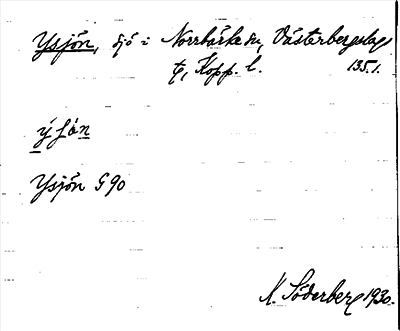 Ysjön, sjö i Norrbärke sn, Västerbergslag
tg, Kopp. l. 135.1.
ýſön
Ysjön G 90
K. Söderberg 1930.